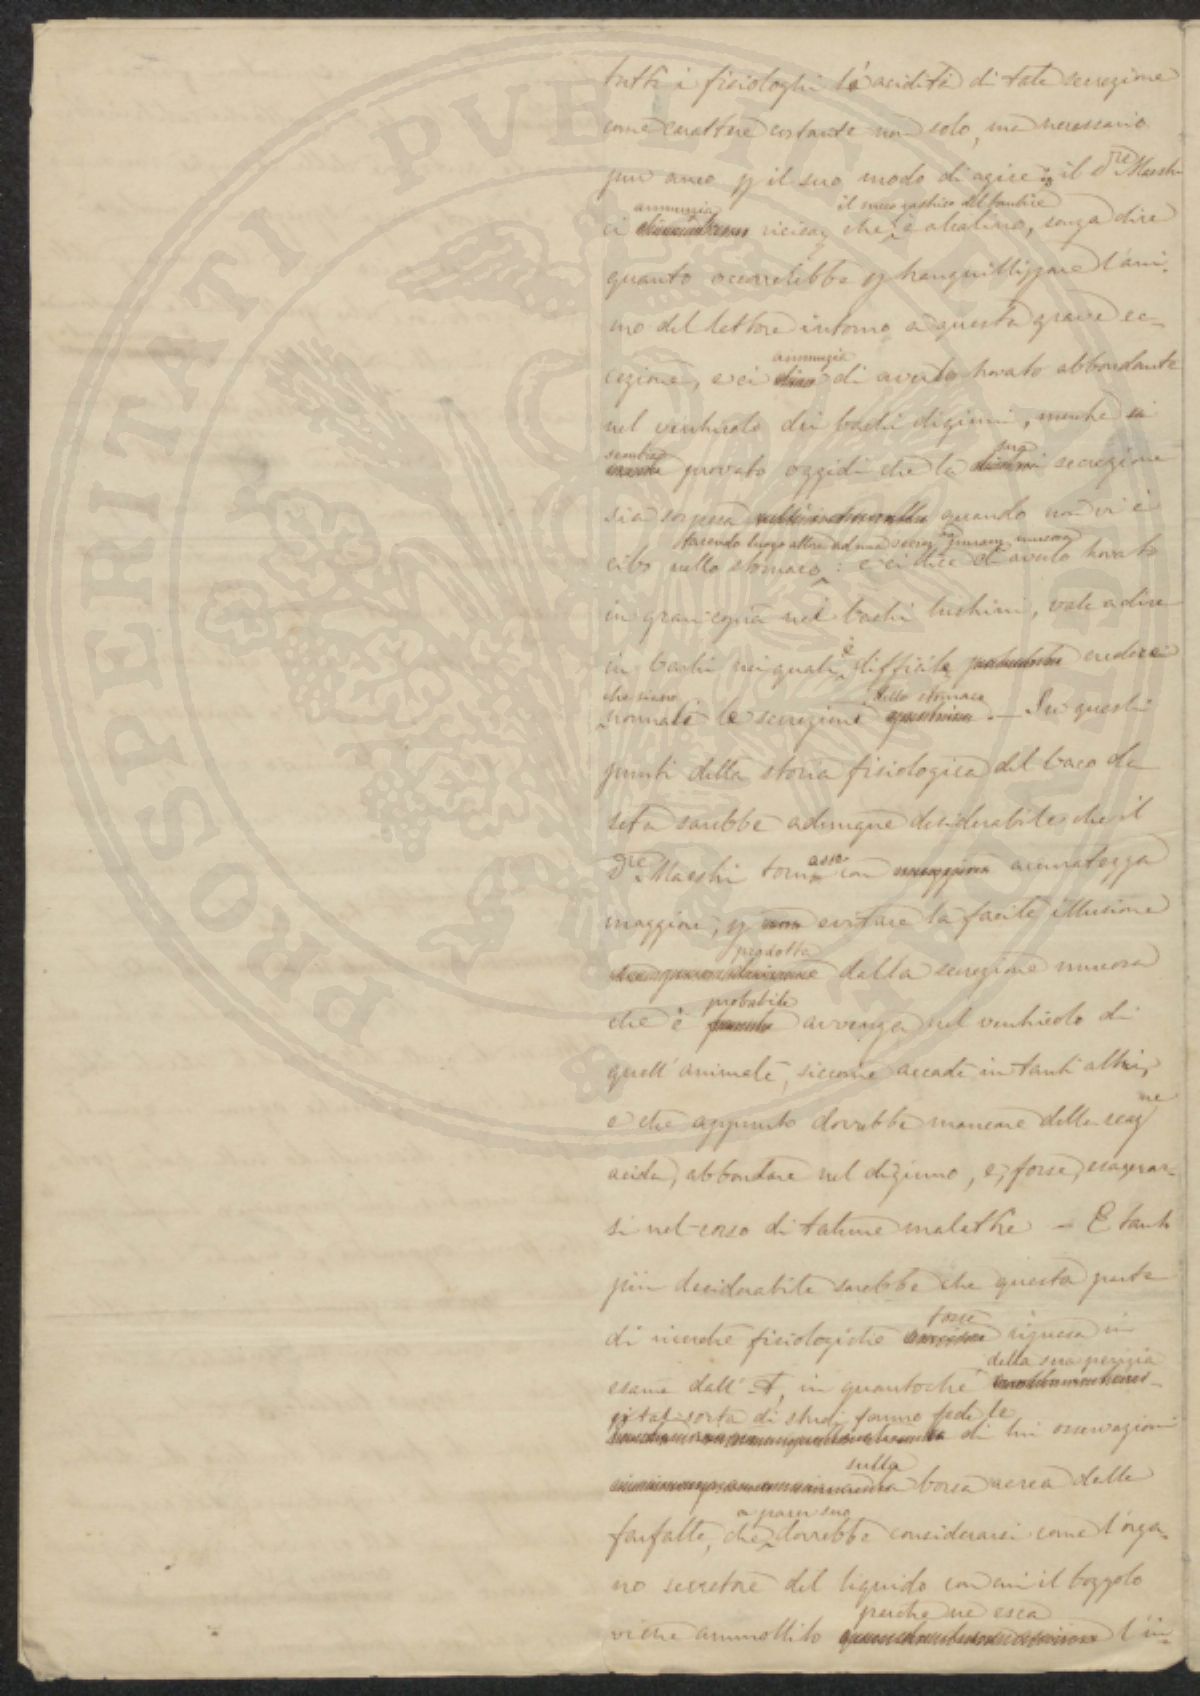 tutti i fisiologhi l'acidità di tale secrezione
come carattere costante non solo, ma necessario
pur anco p il suo modo di agire: il Dre Maestri
annunzia il succo gastrico del bombice
ci recisa che è alcalino, senza dire
quanto occorrerebbe p tranquillizzare l'ani-
mo del lettore intorno a questa grave ec-
annunzia
cezione, e ci di averlo trovato abbondante
nel ventricolo dei bachi digiuni, mentre
sembra sua
provato oggidì che la secrezione
sia sospesa quando non vi è
facendo luogo allora ad una mucosa
cibo nello stomaco: e ci dice di averlo trovato
in gran copia nei bachi luschini, vale a dire
in bachi nei quali è difficile credere
che siano dello stomaco
normali le secrezioni — Su questi
punti della storia fisiologica del baco da
seta sarebbe adunque desiderabile che il
Dre Maestri tornasse con accuratezza
maggiore, p evitare la facile illusione
prodotta
dalla secrezione mucosa
probabile
che è avvenga nel ventricolo di
quell'animale, siccome accade in tanti altri,
e che appunto dovrebbe mancare della
acida, abbondare nel digiuno, e, forse, esagerar-
si nel corso di talune malattie — E tanto
più desiderabile sarebbe che questa parte
fosse
di ricerche fisiologiche ripresa in
della sua perizia
esame dall'A, in quantochè
in tal sorta di studi fanno fede le
di lui osservazioni
sulla
borsa aerea delle
a parer suo
farfalle, che dovrebbe considerarsi come l'orga-
no secretore del liquido con cui il bozzolo
perché ne esca
viene ammollito l'in-